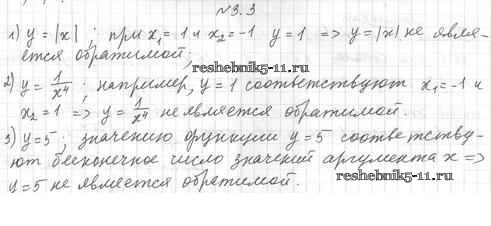 №3.3
1) y = |x| ; при x₁ = 1 и x₂ = -1 y = 1 => y = |x| не явля-
ется обратимой;
2) y = 1/x⁴ ; например, y = 1 соответствуют x₁ = -1 и
x₂ = 1 => y = 1/x⁴ не является обратимой.
reshebnik5-11.ru
3) y = 5 ; значению функции y = 5 соответству-
ют бесконечное число значений аргумента x =>
y = 5 не является обратимой.
reshebnik5-11.ru